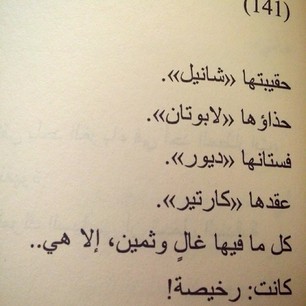 (141)
حقيبتها «شانيل».
حذاؤها «لابوتان».
فستانها «ديور».
عقدها «كارتير».
كل ما فيها غالٍ وثمين، إلا هي..
كانت: رخيصة!